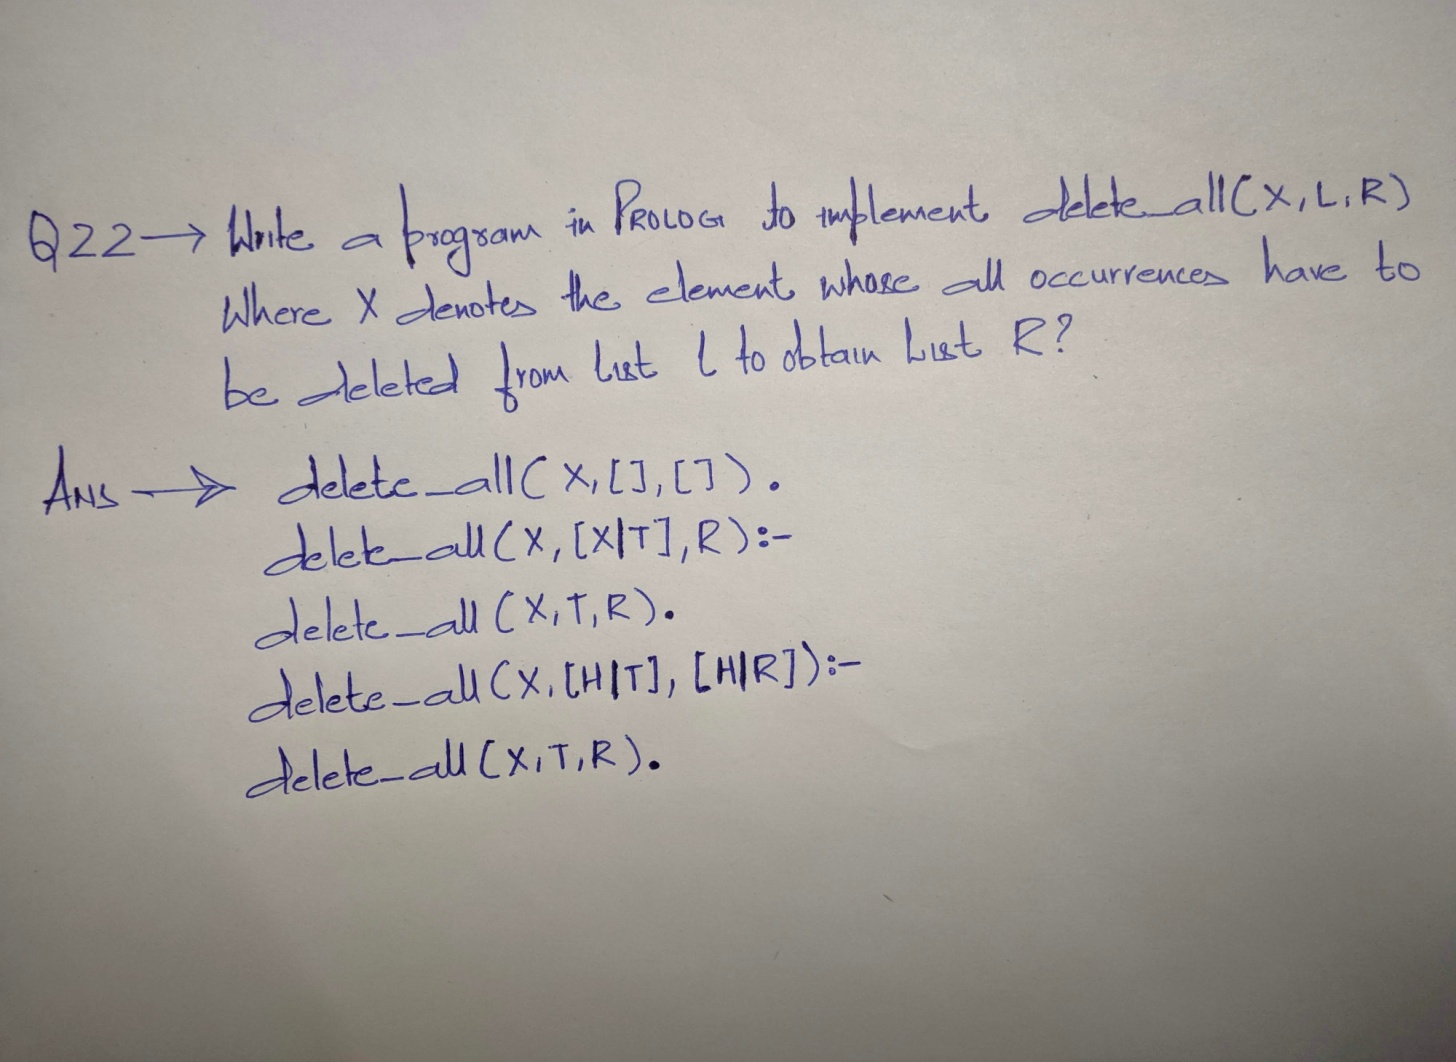 Q22→ Write a program in PROLOG to implement delete_all(X,L,R)
Where X denotes the element whose all occurrences have to
be deleted from List l to obtain List R?
Ans → delete_all(X,[],[]).
delete_all(X,[X|T],R):-
delete_all(X,T,R).
delete_all(X,[H|T],[H|R]):-
delete_all(X,T,R).